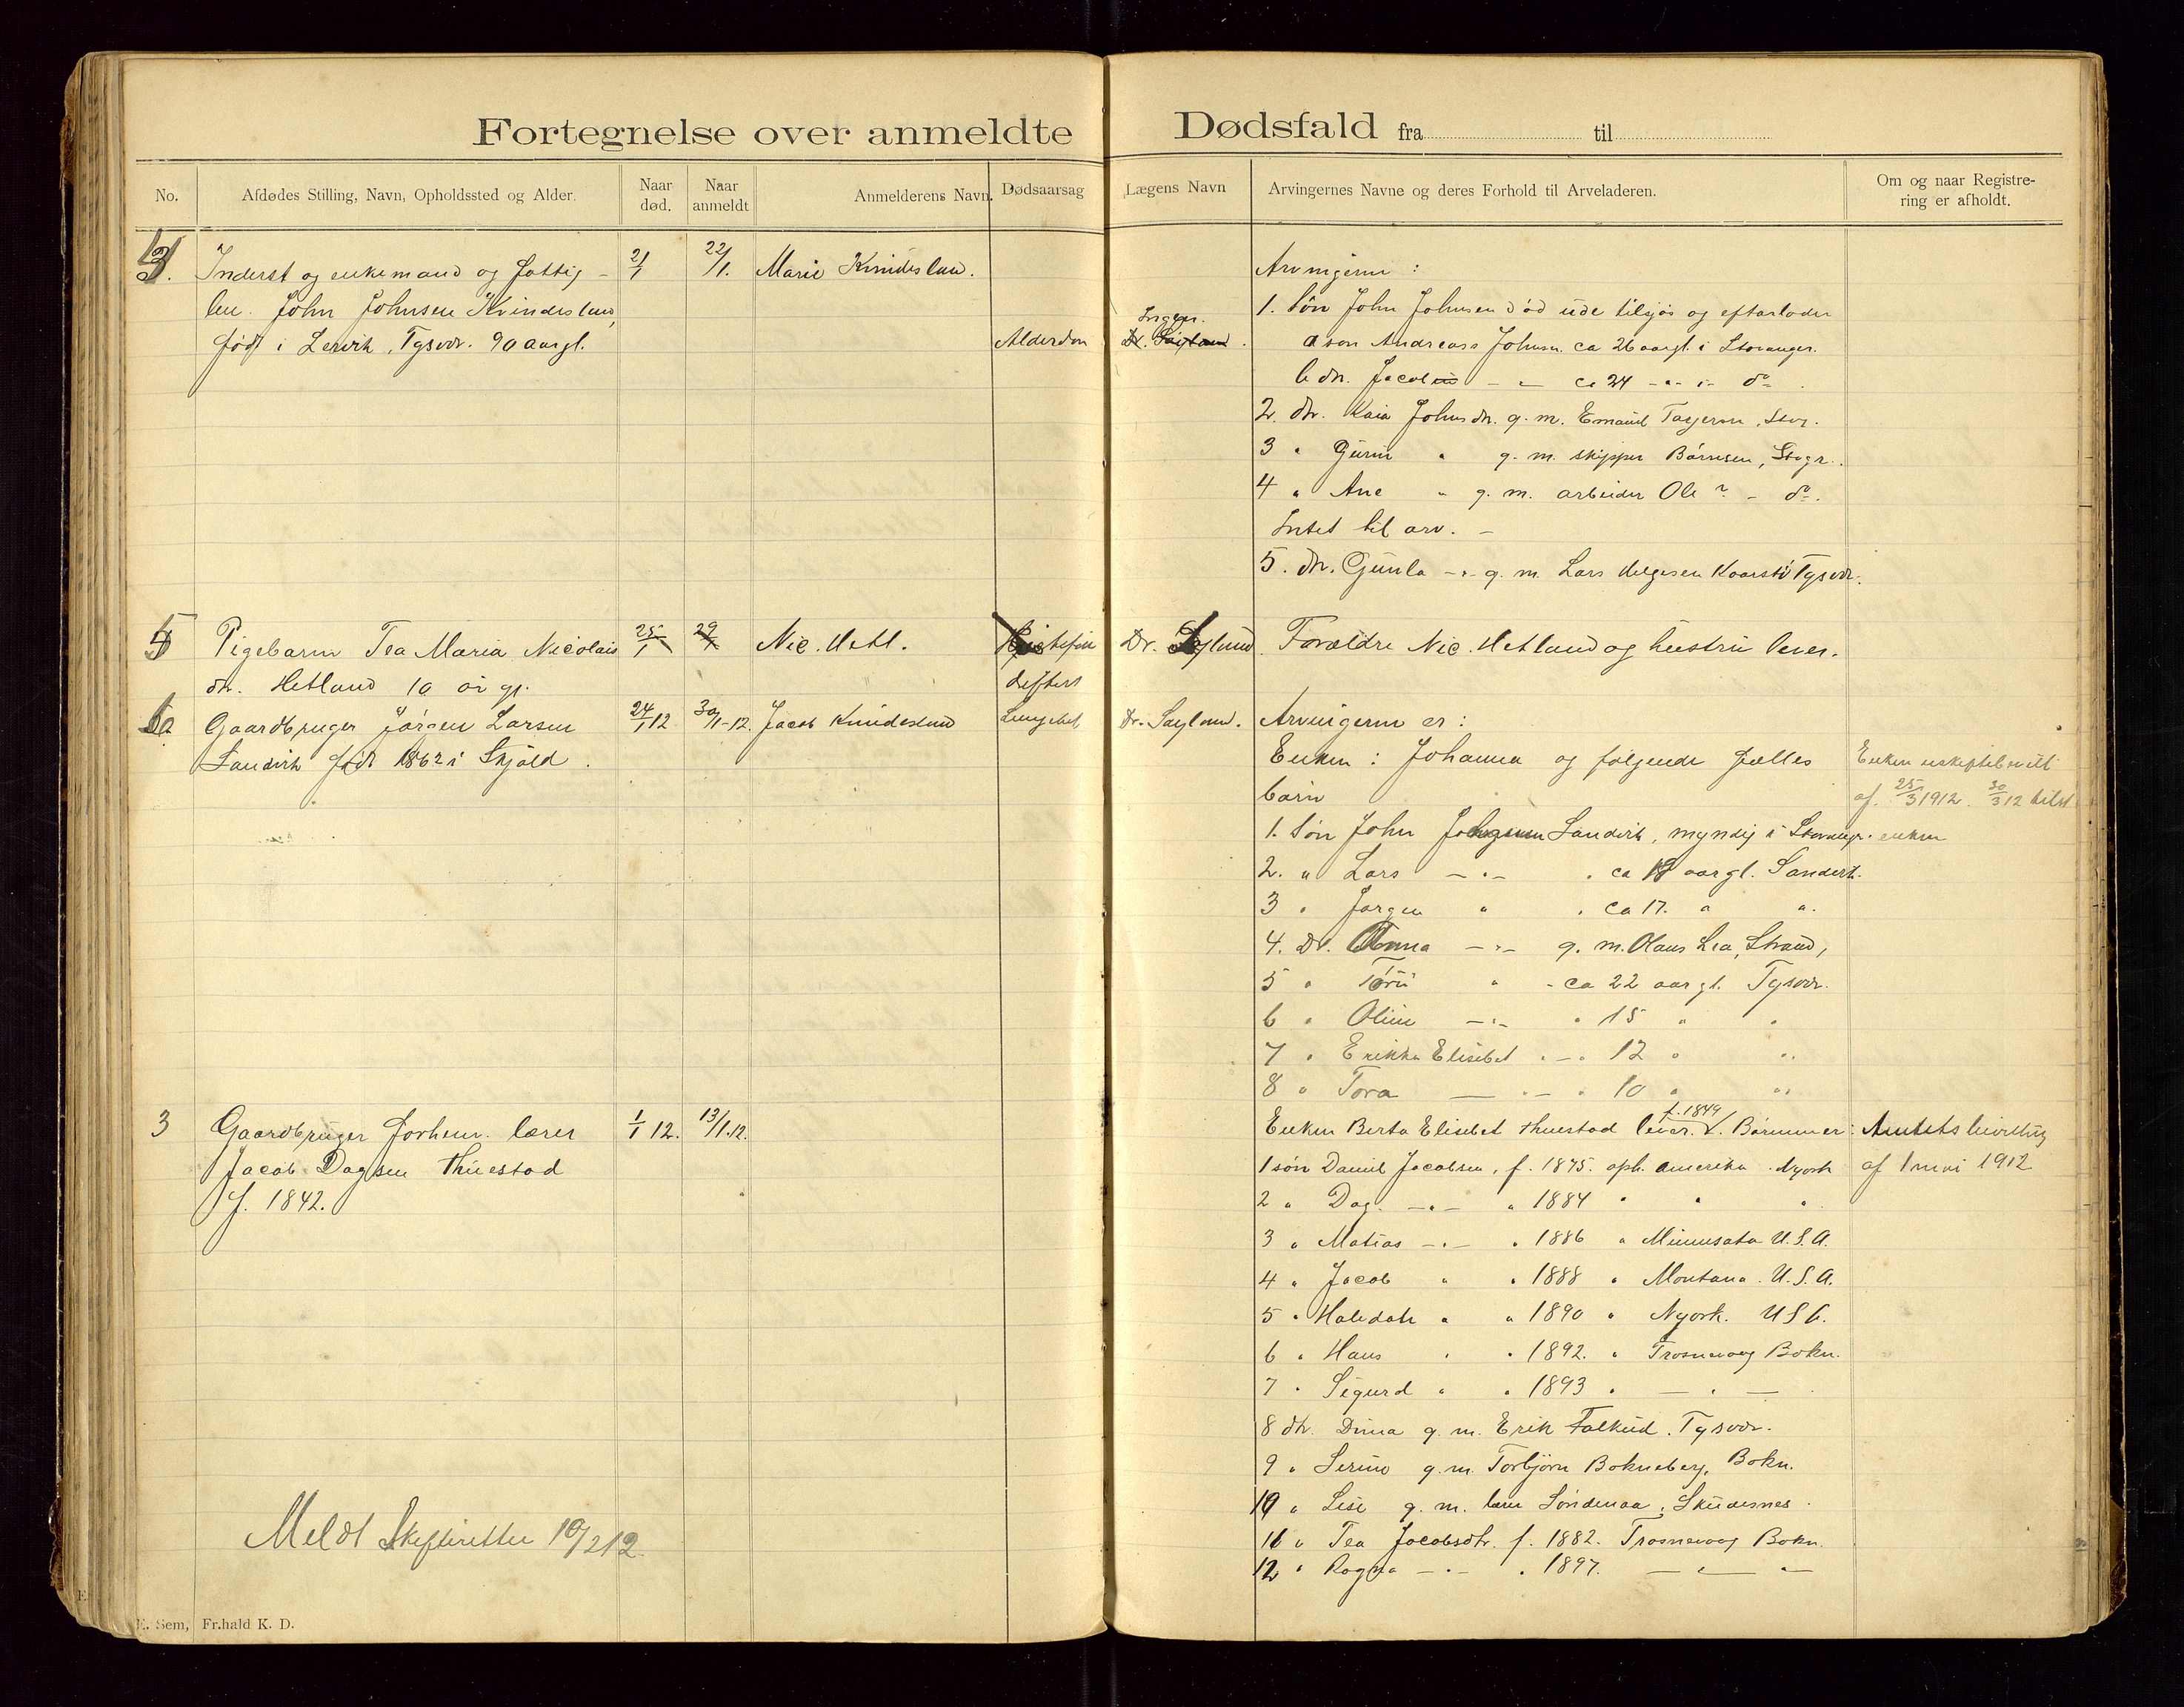 Fortegnelse over anmeldte Dødsfald fra til
No.
Afdødes Stilling, Navn, Opholdssted og Alder.
Naar død.
Naar anmeldt
Anmelderens Navn.
Dødsaarsag
Lægens Navn
Arvingernes Navne og deres Forhold til Arveladeren.
Om og naar Registre-
ring er afholdt.
Inderst og enkemand og fattig-
lem. John Johnsen Kvindesland,
født i Lervik, Tysvær. 90 aar gl.
2/1
22/1.
Marie Kvindesland.
Alderdom
Ingen.
Dr. Søyland.
Arvingerne :
1. Søn John Johnsen død ude tilsjøs og efterlader
a søn Andreas Johnsen ca 26 aar gl. i Stavanger.
b dn. Jacob - " - ca 24 - " - i - do
2. dtr. Kaia Johnsdtr. g. m. Emanuel Tagersen, Stvgr.
3 " Gurine " g. m. skipper Børresen, Stvgr.
4 " Ane " g. m. arbeider Ole ? - do.
Intet til arv. -
5. dtr. Gunla - " - g. m. Lars Helgesen Kaarstø Tysvær.
5
Pigebarn Tea Maria Nicolais
dtr. Hetland 10 år gl.
25/1
29/1
Nic. Hetl.
Dr. Søylund.
Forældre Nic. Hetland og hustru lever.
6
Gaardbruger Jørgen Larsen
Sandvik født 1862 i Skjold.
24/1 12
30/1-12.
Jacob Kvindesland
Lungebet.
Dr. Søyland.
Arvingerne er :
Enken : Johanna og følgende fælles
børn
1. Søn John Jørgensen Sandvik, myndig i Stavanger.
2. " Lars - " - " ca 18 aar gl. Sandvik.
3 " Jørgen " " ca 17. " "
4. Dr. Anna - " - g. m. Olaus Lea, Strand,
5 " Toru " - ca 22 aar gl. Tysvær.
6 " Oline - " - " 15 " "
7 " Erikka Elisebet " - " 12 " "
8 " Tora - " - " 10 " "
Enken uskiftebevilt
af 25/3 1912. 30/3 12 tilst
enken
3
Gaardbruger forhenv. lærer
Jacob Dagsen Thuestad
f. 1842.
1/1 12.
13/1.12.
Enken Berta Elisebet Thuestad lever. f. 1849. Børnene er:
1 søn Daniel Jacobsen, f. 1875. oph. Amerika. Nyork
2 " Dag. - " - " 1884 " " "
3 " Matias - " - " 1886 " Minnesata U.S.A.
4 " Jacob " " 1888 " Montana. U.S.A.
5 " Halvdan " " 1890 " Nyork. USA.
6 " Hans " " 1892. " Trosnavaag Bokn.
7 " Sigurd " " 1893 " - " -
8 dtr. Dina g. m. Erik Falkeid. Tysvær.
9 " Serine g. m. Torbjørn Bokneberg, Bokn.
10 " Lise g. m. lærer Søndenaa, Skudesnes.
11 " Tea Jacobsdtr. f. 1882. Trosnavaag Bokn.
12 " Ragna - " - " 1897. - " - " -
Amtets bevilling
af 1 mai 1912
Meldt Skifteretten 10/2 12.
E. Sem, Fr.hald K. D.